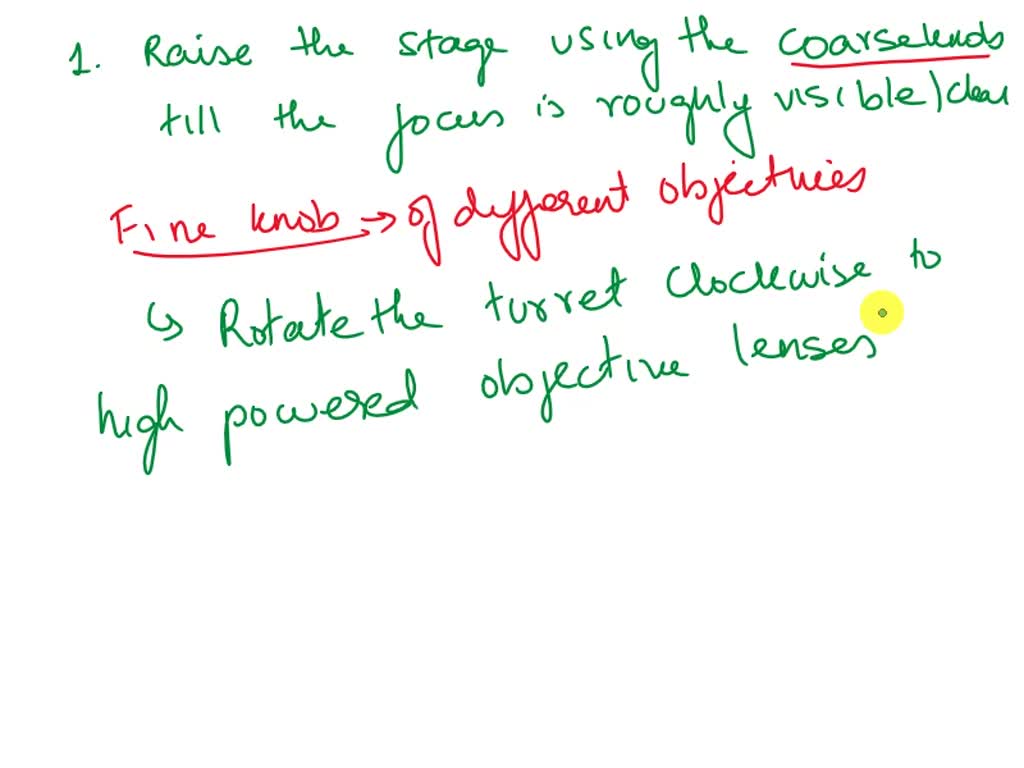 1. Raise the stage using the coarse knob
till the focus is roughly visible/clear
Fine knob → of different objectives
↳ Rotate the turret clockwise to
high powered objective lenses